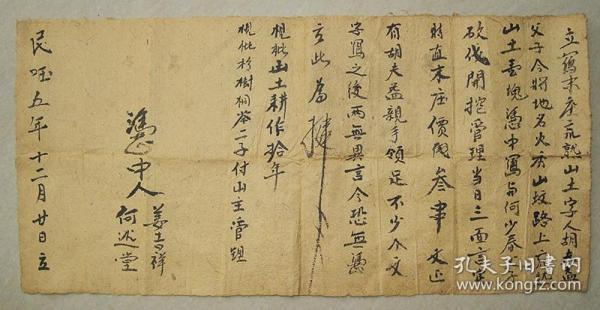 立寫木庄荒熟山土字人胡夫益
父子今將地名火 山坟路上
山土壹塊憑中寫与何少春
砍伐開挖管理當日三面言定
時直木庄價 叁 文正
有胡夫益親手領足不少个文
字寫之後兩無異言今恐無憑
立此為據
規批山土耕作拾年
規批杉樹桐茶二子付山主管理
憑中人 姜 祥
何述堂
民 五年十二月廿日立
孔夫子旧書网
www.kongfz.com